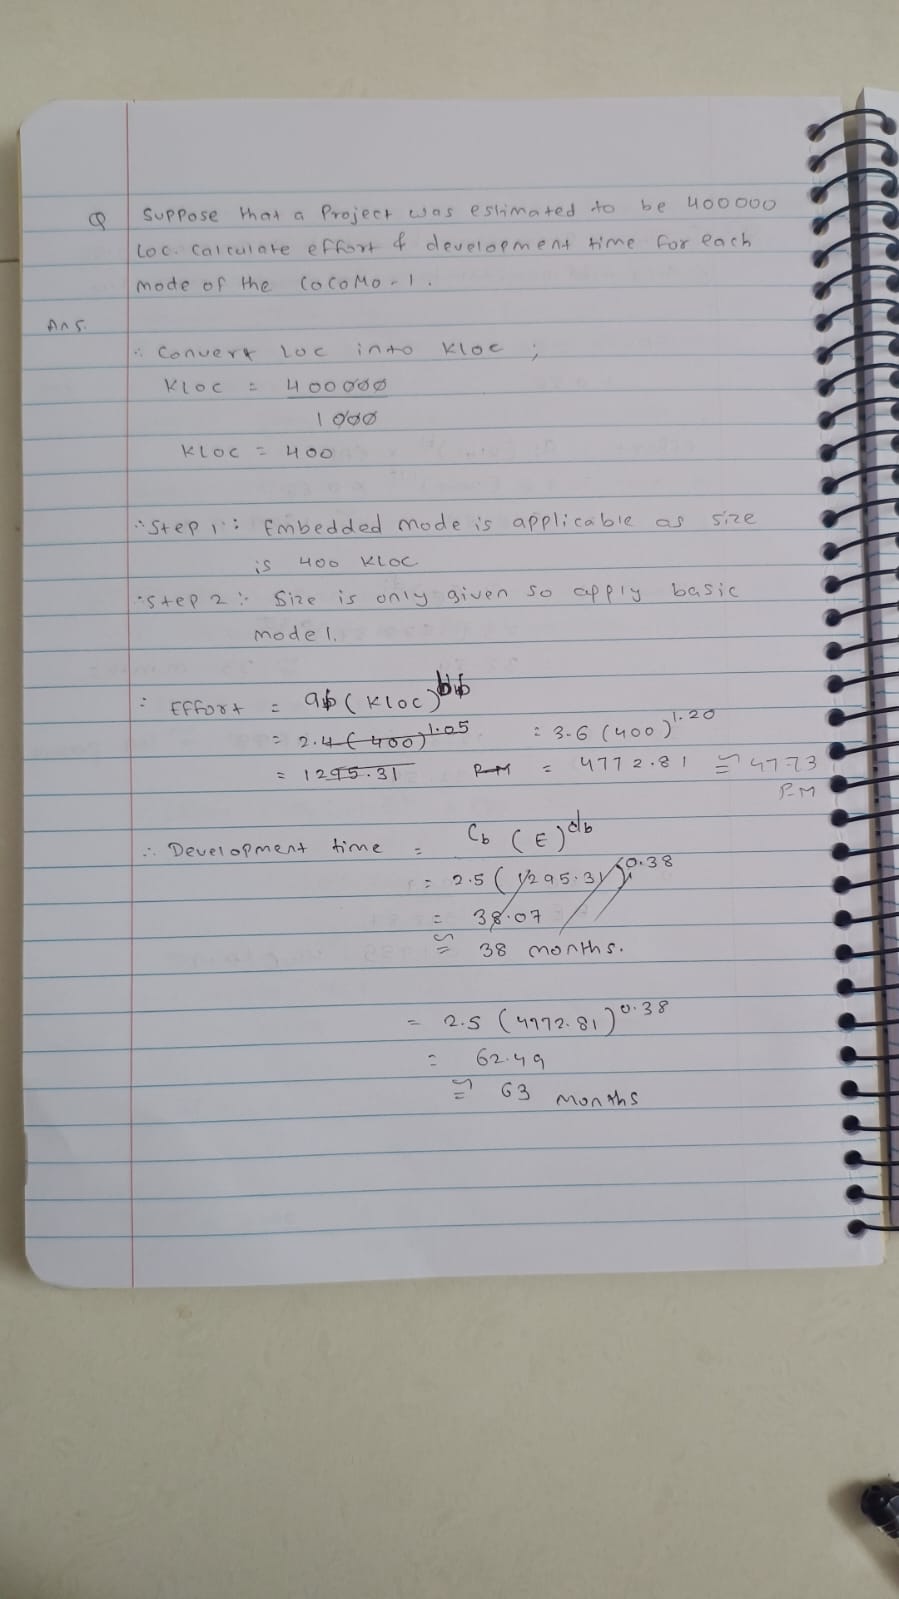 Q Suppose that a Project was estimated to be 400000
LOC. Calculate effort & development time for each
mode of the COCOMO-1.
Ans.
∴ Convert LOC into KLOC ;
KLOC = 400000
1000
KLOC = 400
∴ Step 1 : Embedded mode is applicable as size
is 400 KLOC
∴ Step 2 : Size is only given so apply basic
model.
∴ Effort = ab (KLOC)^bb
= 2.4 (400)^1.05 = 3.6 (400)^1.20
= 1295.31 PM = 4772.81 ≅ 4773
PM
∴ Development time = Cb (E)^db
= 2.5 (1295.31)^0.38
= 38.07
≅ 38 months.
= 2.5 (4772.81)^0.38
= 62.49
≅ 63 months